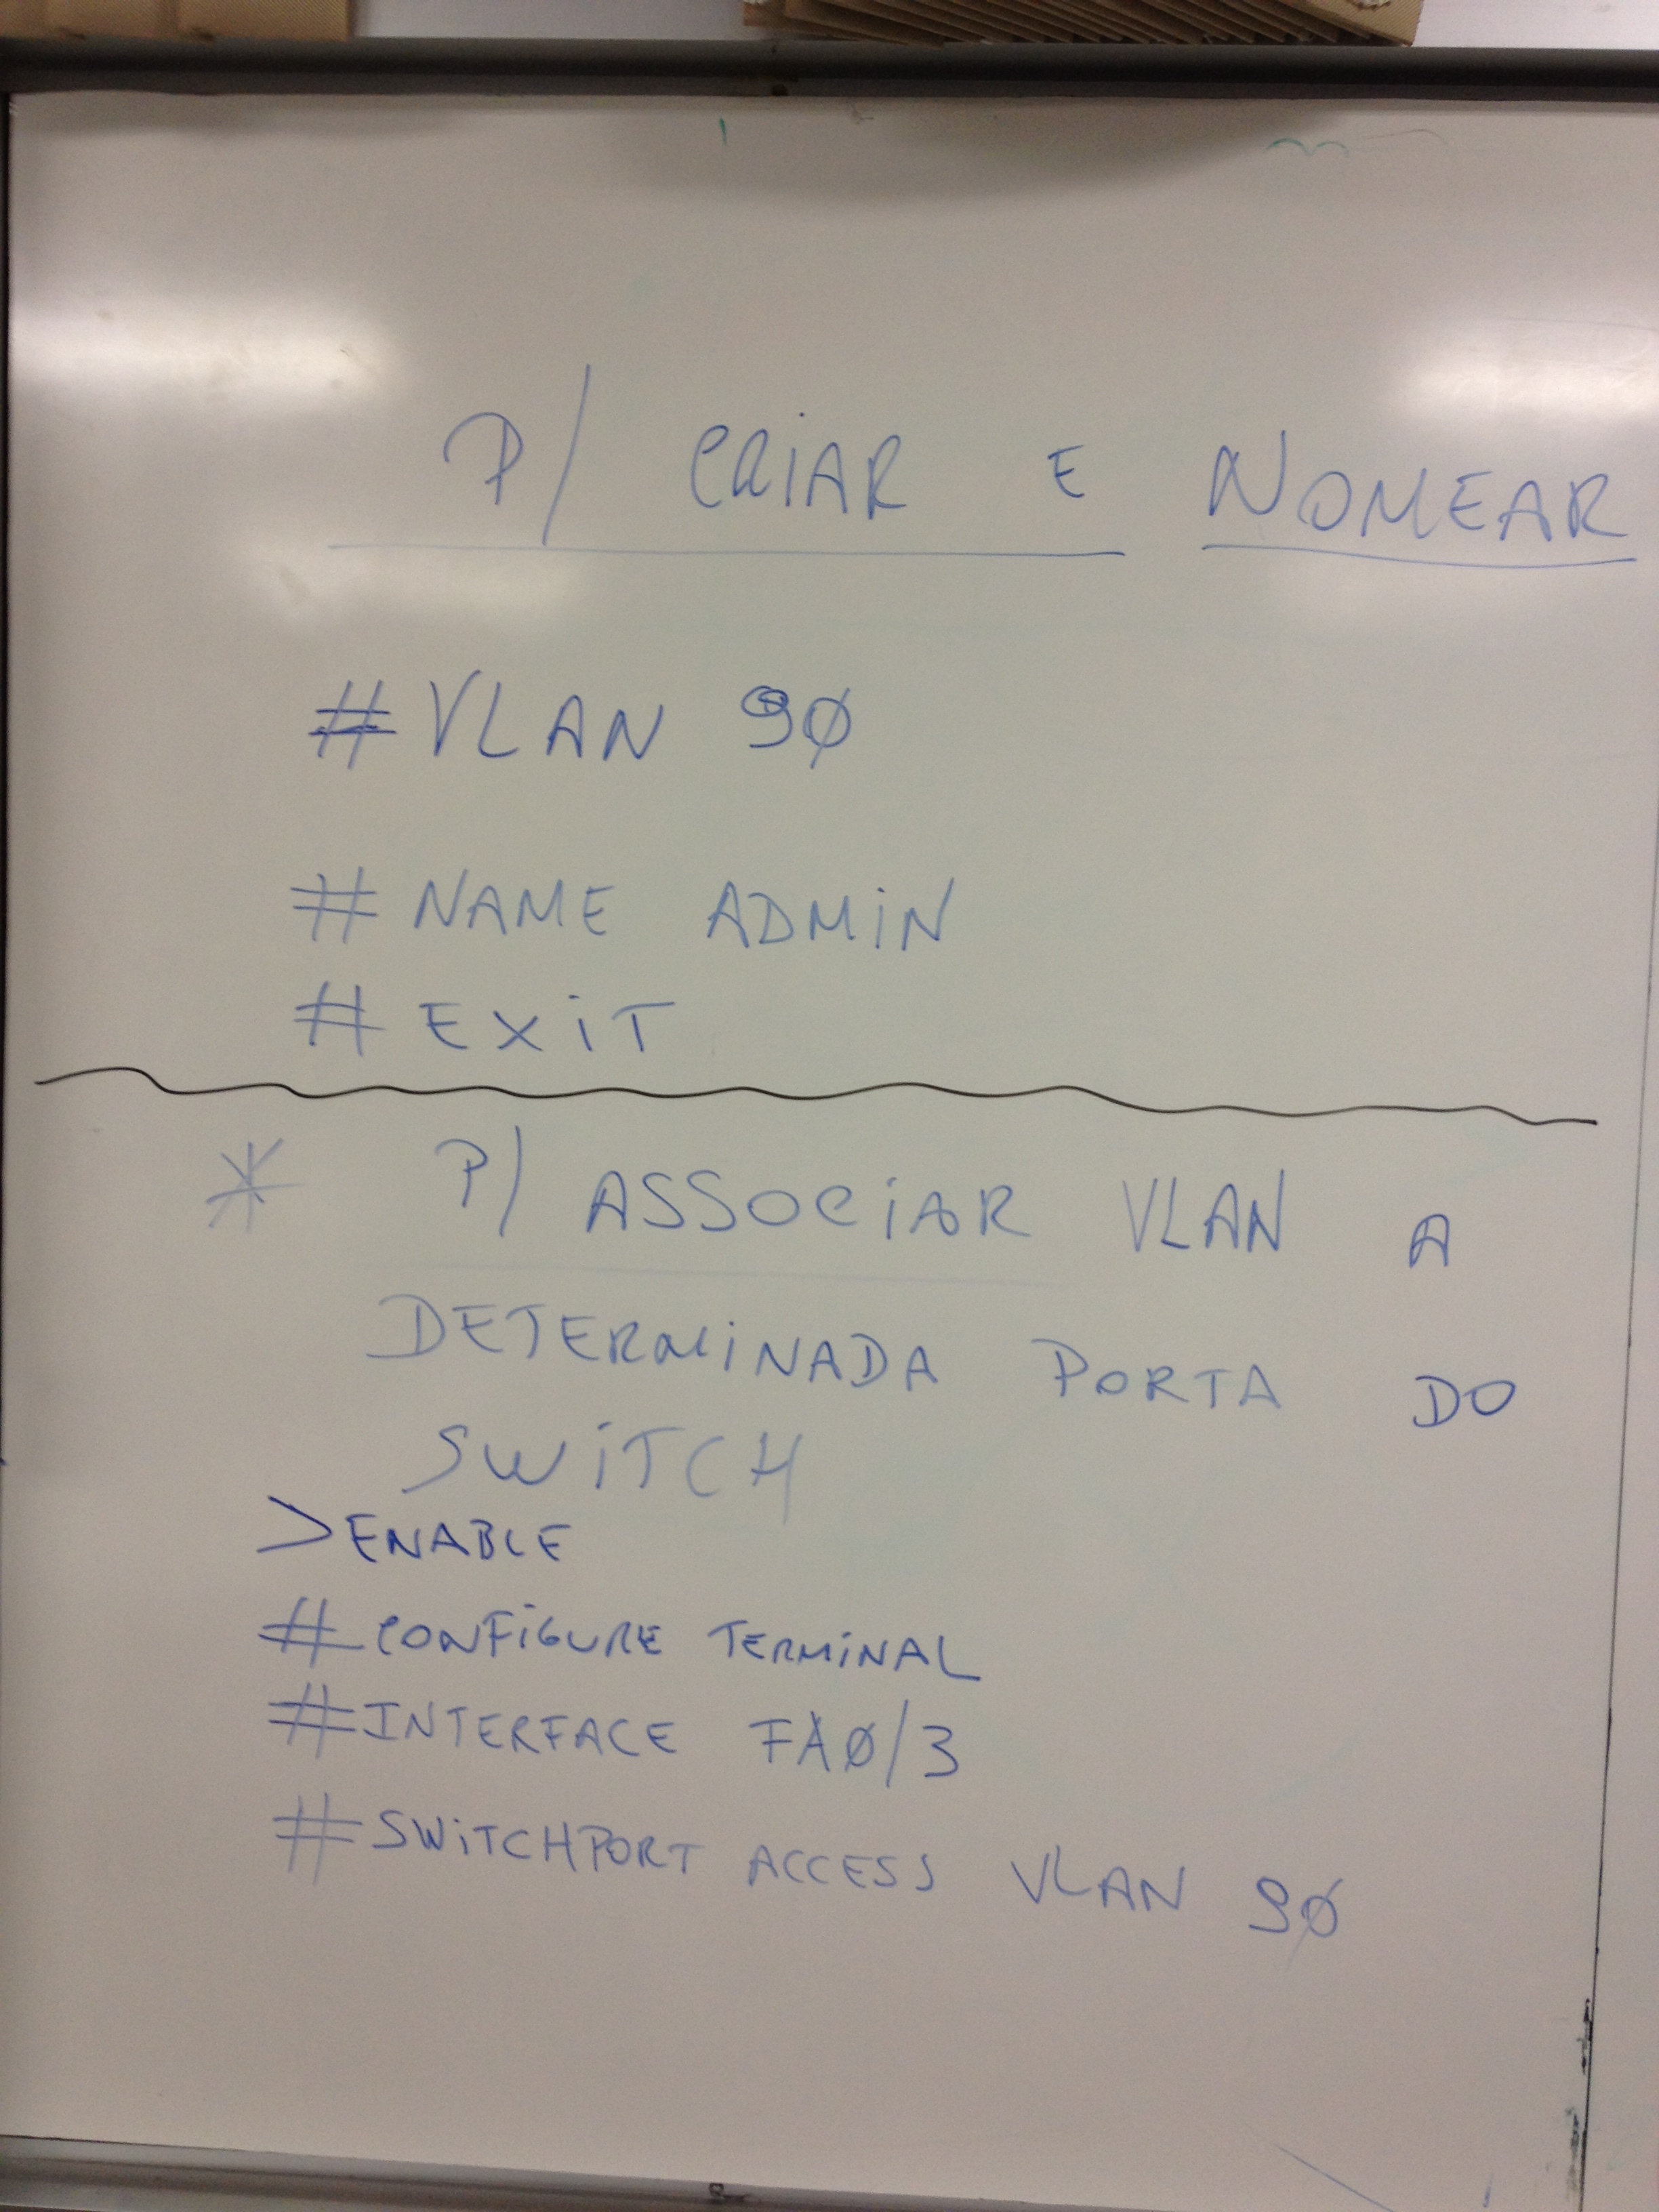 P/ CRIAR E NOMEAR
# VLAN 90
# NAME ADMIN
# EXIT
* P/ ASSOCIAR VLAN A
DETERMINADA PORTA DO
SWITCH
>ENABLE
# CONFIGURE TERMINAL
# INTERFACE FA0/3
# SWITCHPORT ACCESS VLAN 90